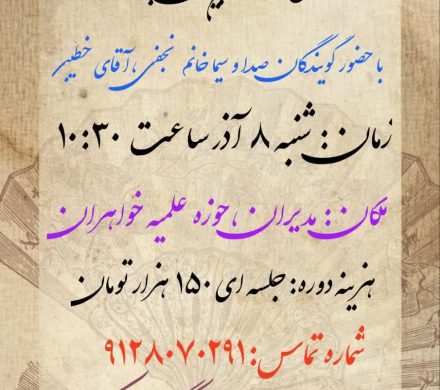 با حضور گویندگان صدا و سیما خانم نجفی، آقای خطیبی
زمان: شنبه ۸ آذر ساعت ۱۰:۳۰
مکان: مدیران، حوزه علمیه خواهران
هزینه دوره: جلسه ای ۱۵۰ هزار تومان
شماره تماس: ۹۱۲۸۰۷۰۲۹۱